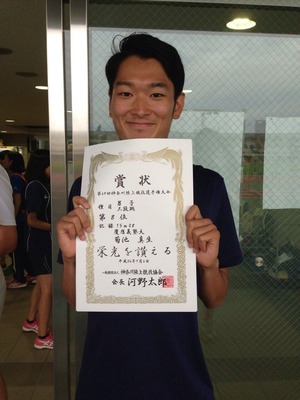 賞状
第69回神奈川陸上競技選手権大会
種目 男子 三段跳
第8位
記録 15m28
慶應義塾大
菊池 真生
栄光を讃える
平成26年7月6日
一般財団法人 神奈川陸上競技協会
会長 河野太郎